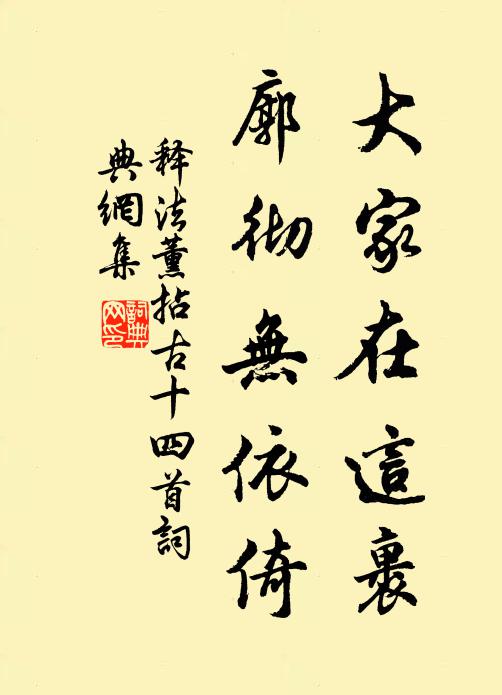 大家在這裏
廓彻無依倚
释法薰拈古十四首詞
典網集
詞典网印